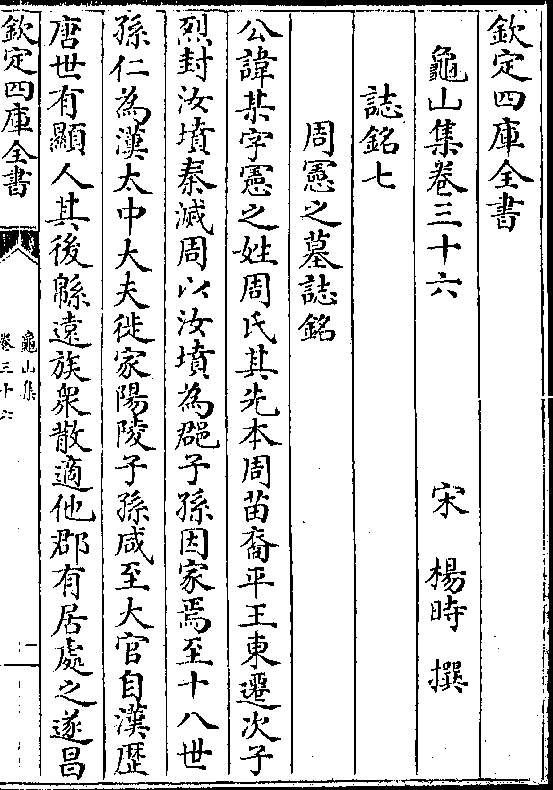 欽定四庫全書
龜山集卷三十六
宋 楊時 撰
誌銘七
周憲之墓誌銘
公諱某字憲之姓周氏其先本周苗裔平王東遷次子
烈封汝墳秦滅周以汝墳為郡子孫因家焉至十八世
孫仁為漢太中大夫徙家陽陵子孫咸至大官自漢歴
唐世有顯人其後緜遠族衆散適他郡有居處之遂昌
欽定四庫全書
龜山集
卷三十六
一